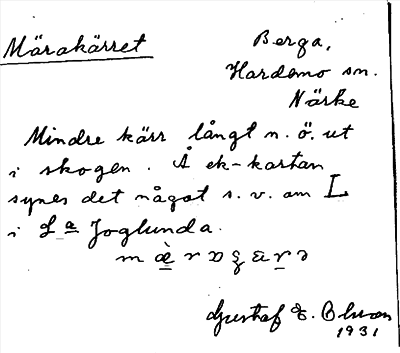 Märakärret
Berga,
Hardemo sn.
Närke
Mindre kärr långt n. ö. ut
i skogen. Å ek-kartan
synes det något s. v. om L
i La Joglunda.
Gustaf E.
1931